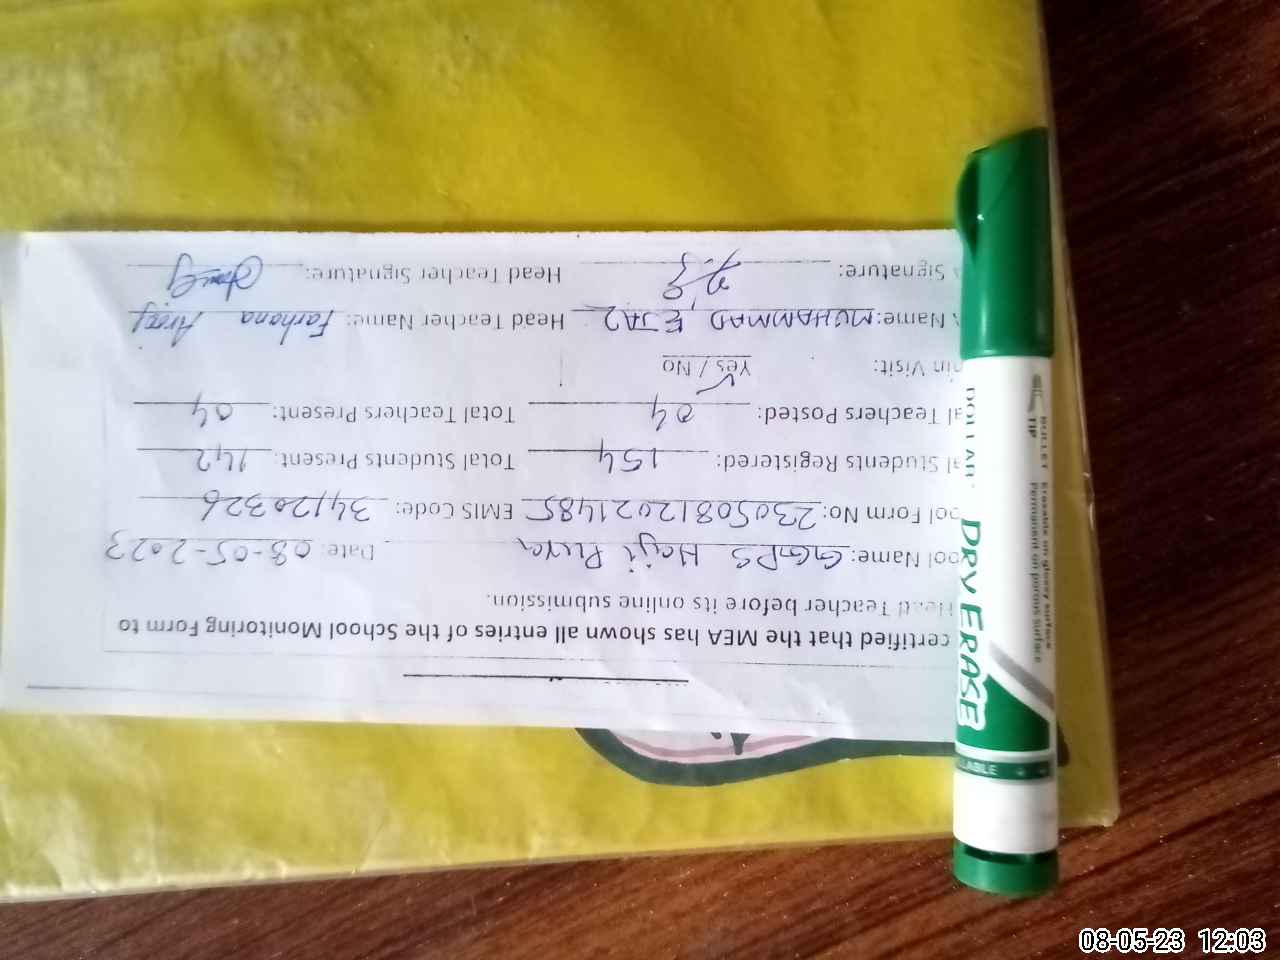 certified that the MEA has shown all entries of the School Monitoring Form to
Head Teacher before its online submission.
ool Name: GGPS Haji Pura Date: 08-05-2023
ool Form No: 23050812021485 EMIS Code: 34120326
al Students Registered: 154 Total Students Present: 142
al Teachers Posted: 04 Total Teachers Present: 04
in Visit: Yes / No
Name: MUHAMMAD EJAZ Head Teacher Name: Farhana
Signature: Head Teacher Signature:
DOLLAR
DRY ERASE
BULLET TIP
Erasable on glossy surface
Permanent on porous surface
LLABLE
08-05-23 12:03